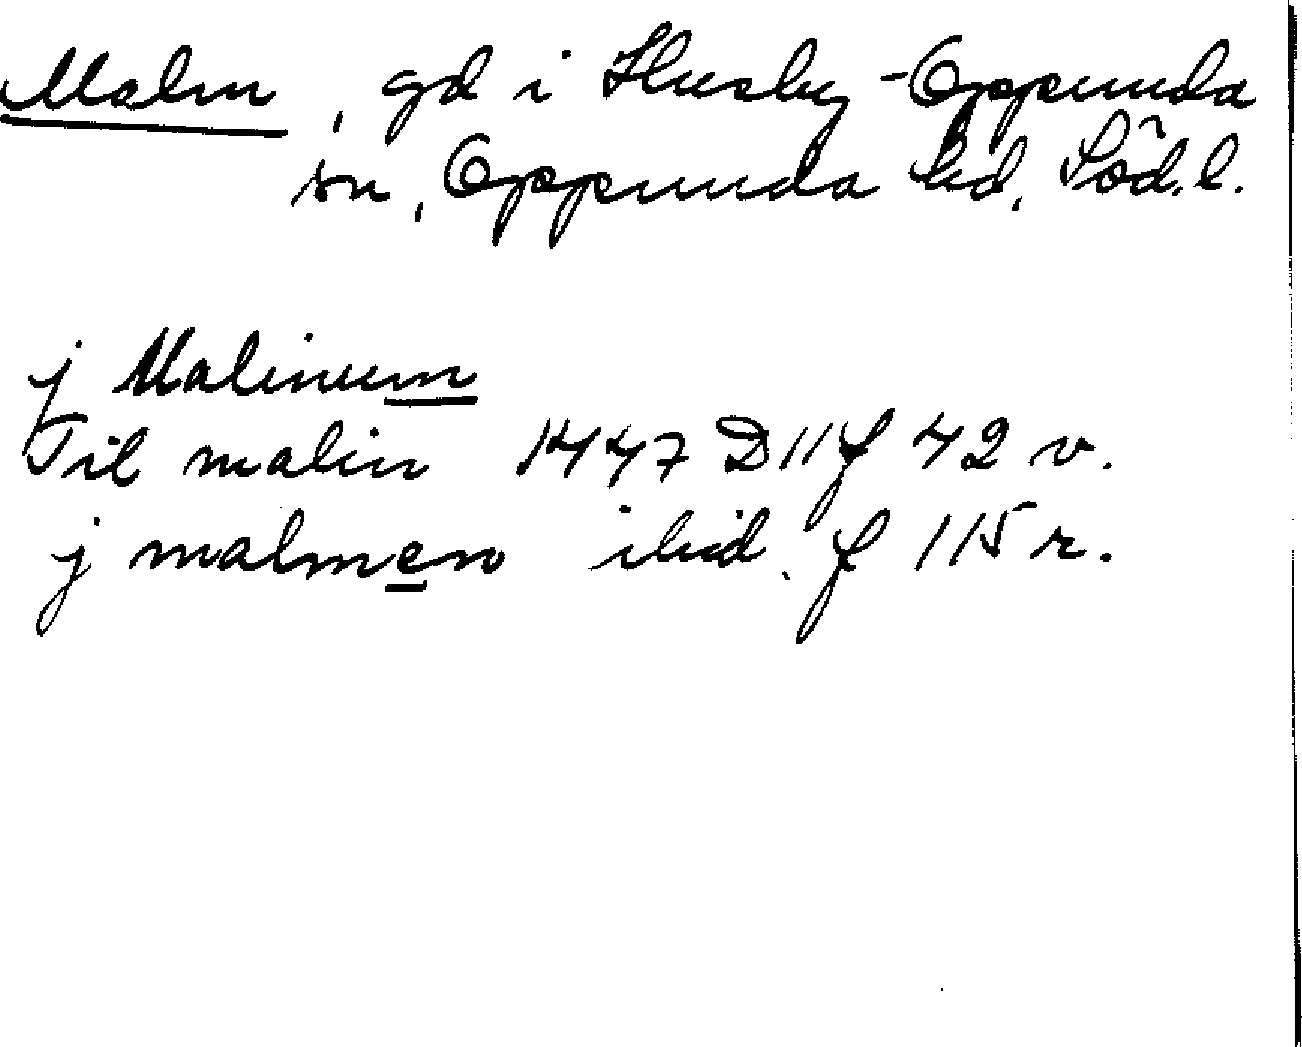 Malm, gd i Husby-Oppunda
sn, Oppunda hd, Söd.l.
j Malinum
Til malin 1447 D11 f 42 v.
j malmen ibid. f 115 r.